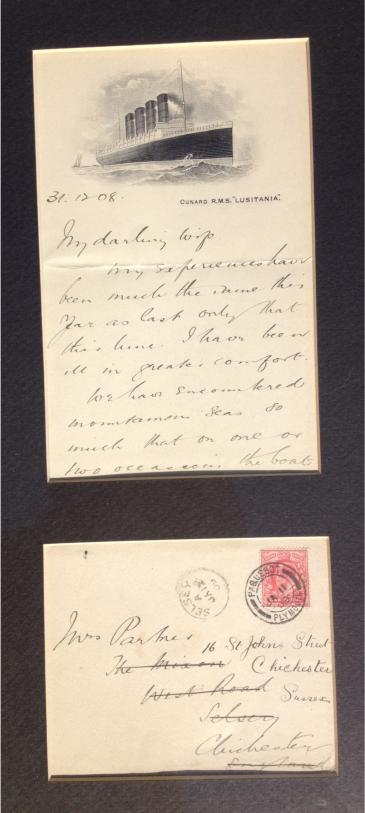 31.12.08.
CUNARD R.M.S. "LUSITANIA".
My darling wife
my experiences have
been much the same this
year as last only that
this time I have been
ill in greater comfort.
We have encountered
mountainous seas so
much that on one or
two occasions the boat
SELSEY
JA 12
PAQUEBOT
PLYMOUTH
Mrs Partner
16 St Johns Street
The Mixon Chichester
West Road Sussex
Selsey
Chichester
England